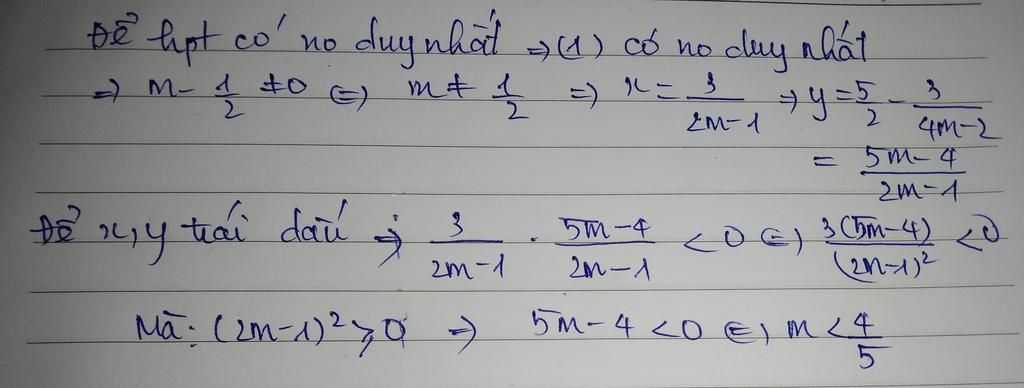 Để hpt có no duy nhất => (1) có no duy nhất
=> m - 1/2 ≠ 0 <=> m ≠ 1/2 => x = 3/(2m-1) => y = 5/2 - 3/(4m-2)
= (5m-4)/(2m-1)
Để x, y trái dấu => 3/(2m-1) . (5m-4)/(2m-1) < 0 <=> 3(5m-4)/(2m-1)² < 0
Mà: (2m-1)² ≥ 0 => 5m-4 < 0 <=> m < 4/5